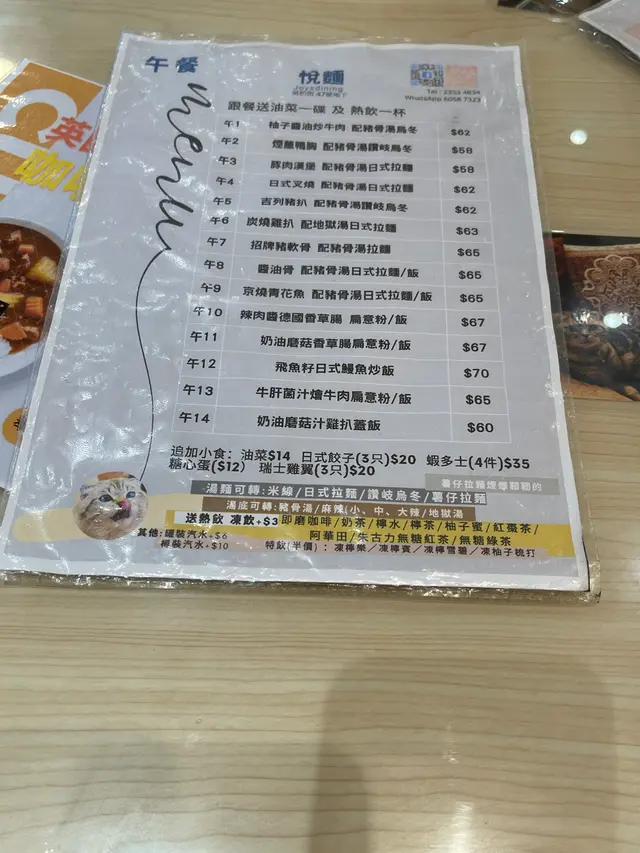 午餐
menu
悅麵
Joysdining
Tel : 2353 4834
WhatsApp 6058 7323
跟餐送油菜一碟 及 熱飲一杯
午1 柚子醬油炒牛肉 配豬骨湯烏冬 $62
午2 煙燻鴨胸 配豬骨湯讚岐烏冬 $58
午3 豚肉漢堡 配豬骨湯日式拉麵 $58
午4 日式叉燒 配豬骨湯日式拉麵 $62
午5 吉列豬扒 配豬骨湯讚岐烏冬 $62
午6 炭燒雞扒 配地獄湯日式拉麵 $63
午7 招牌豬軟骨 配豬骨湯拉麵 $65
午8 醬油骨 配豬骨湯日式拉麵/飯 $65
午9 京燒青花魚 配豬骨湯日式拉麵/飯 $65
午10 辣肉醬德國香草腸 扁意粉/飯 $67
午11 奶油磨菇香草腸扁意粉/飯 $67
午12 飛魚籽日式鰻魚炒飯 $70
午13 牛肝菌汁燴牛肉扁意粉/飯 $65
午14 奶油磨菇汁雞扒蓋飯 $60
追加小食: 油菜$14 日式餃子(3只)$20 蝦多士(4件)$35
糖心蛋($12) 瑞士雞翼(3只)$20
湯麵可轉:米線/日式拉麵/讚岐烏冬/薯仔拉麵
湯底可轉:豬骨湯/麻辣(小、中、大辣/地獄湯
送熱飲 凍飲+$3 即磨咖啡/奶茶/檸水/檸茶/柚子蜜/紅棗茶/
阿華田/朱古力無糖紅茶/無糖綠茶
其他: 罐裝汽水+$6
樽裝汽水+$10
特飲(半價) : 凍檸樂/凍檸賓/凍檸雪碧/凍柚子梳打